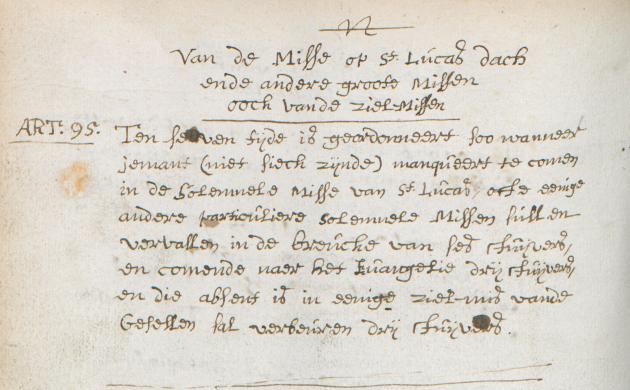 Van de Misse op St. Lucas dach
ende andere groote Missen
oock vande ziel-Missen
ART: 95. Ten selven tijde is geordonneert soo wanneer
jemant (niet sieck zijnde) manqueert te comen
in de Solemnele Misse van St. Lucas, ofte eenige
andere particuliere Solemnele Missen sullen
vervallen in de breucke van ses stuijvers,
en comende naer het Euangelie drij stuijvers,
en die absent is in eenige ziel-mis vande
Gesellen sal verbeuren drij stuijvers.